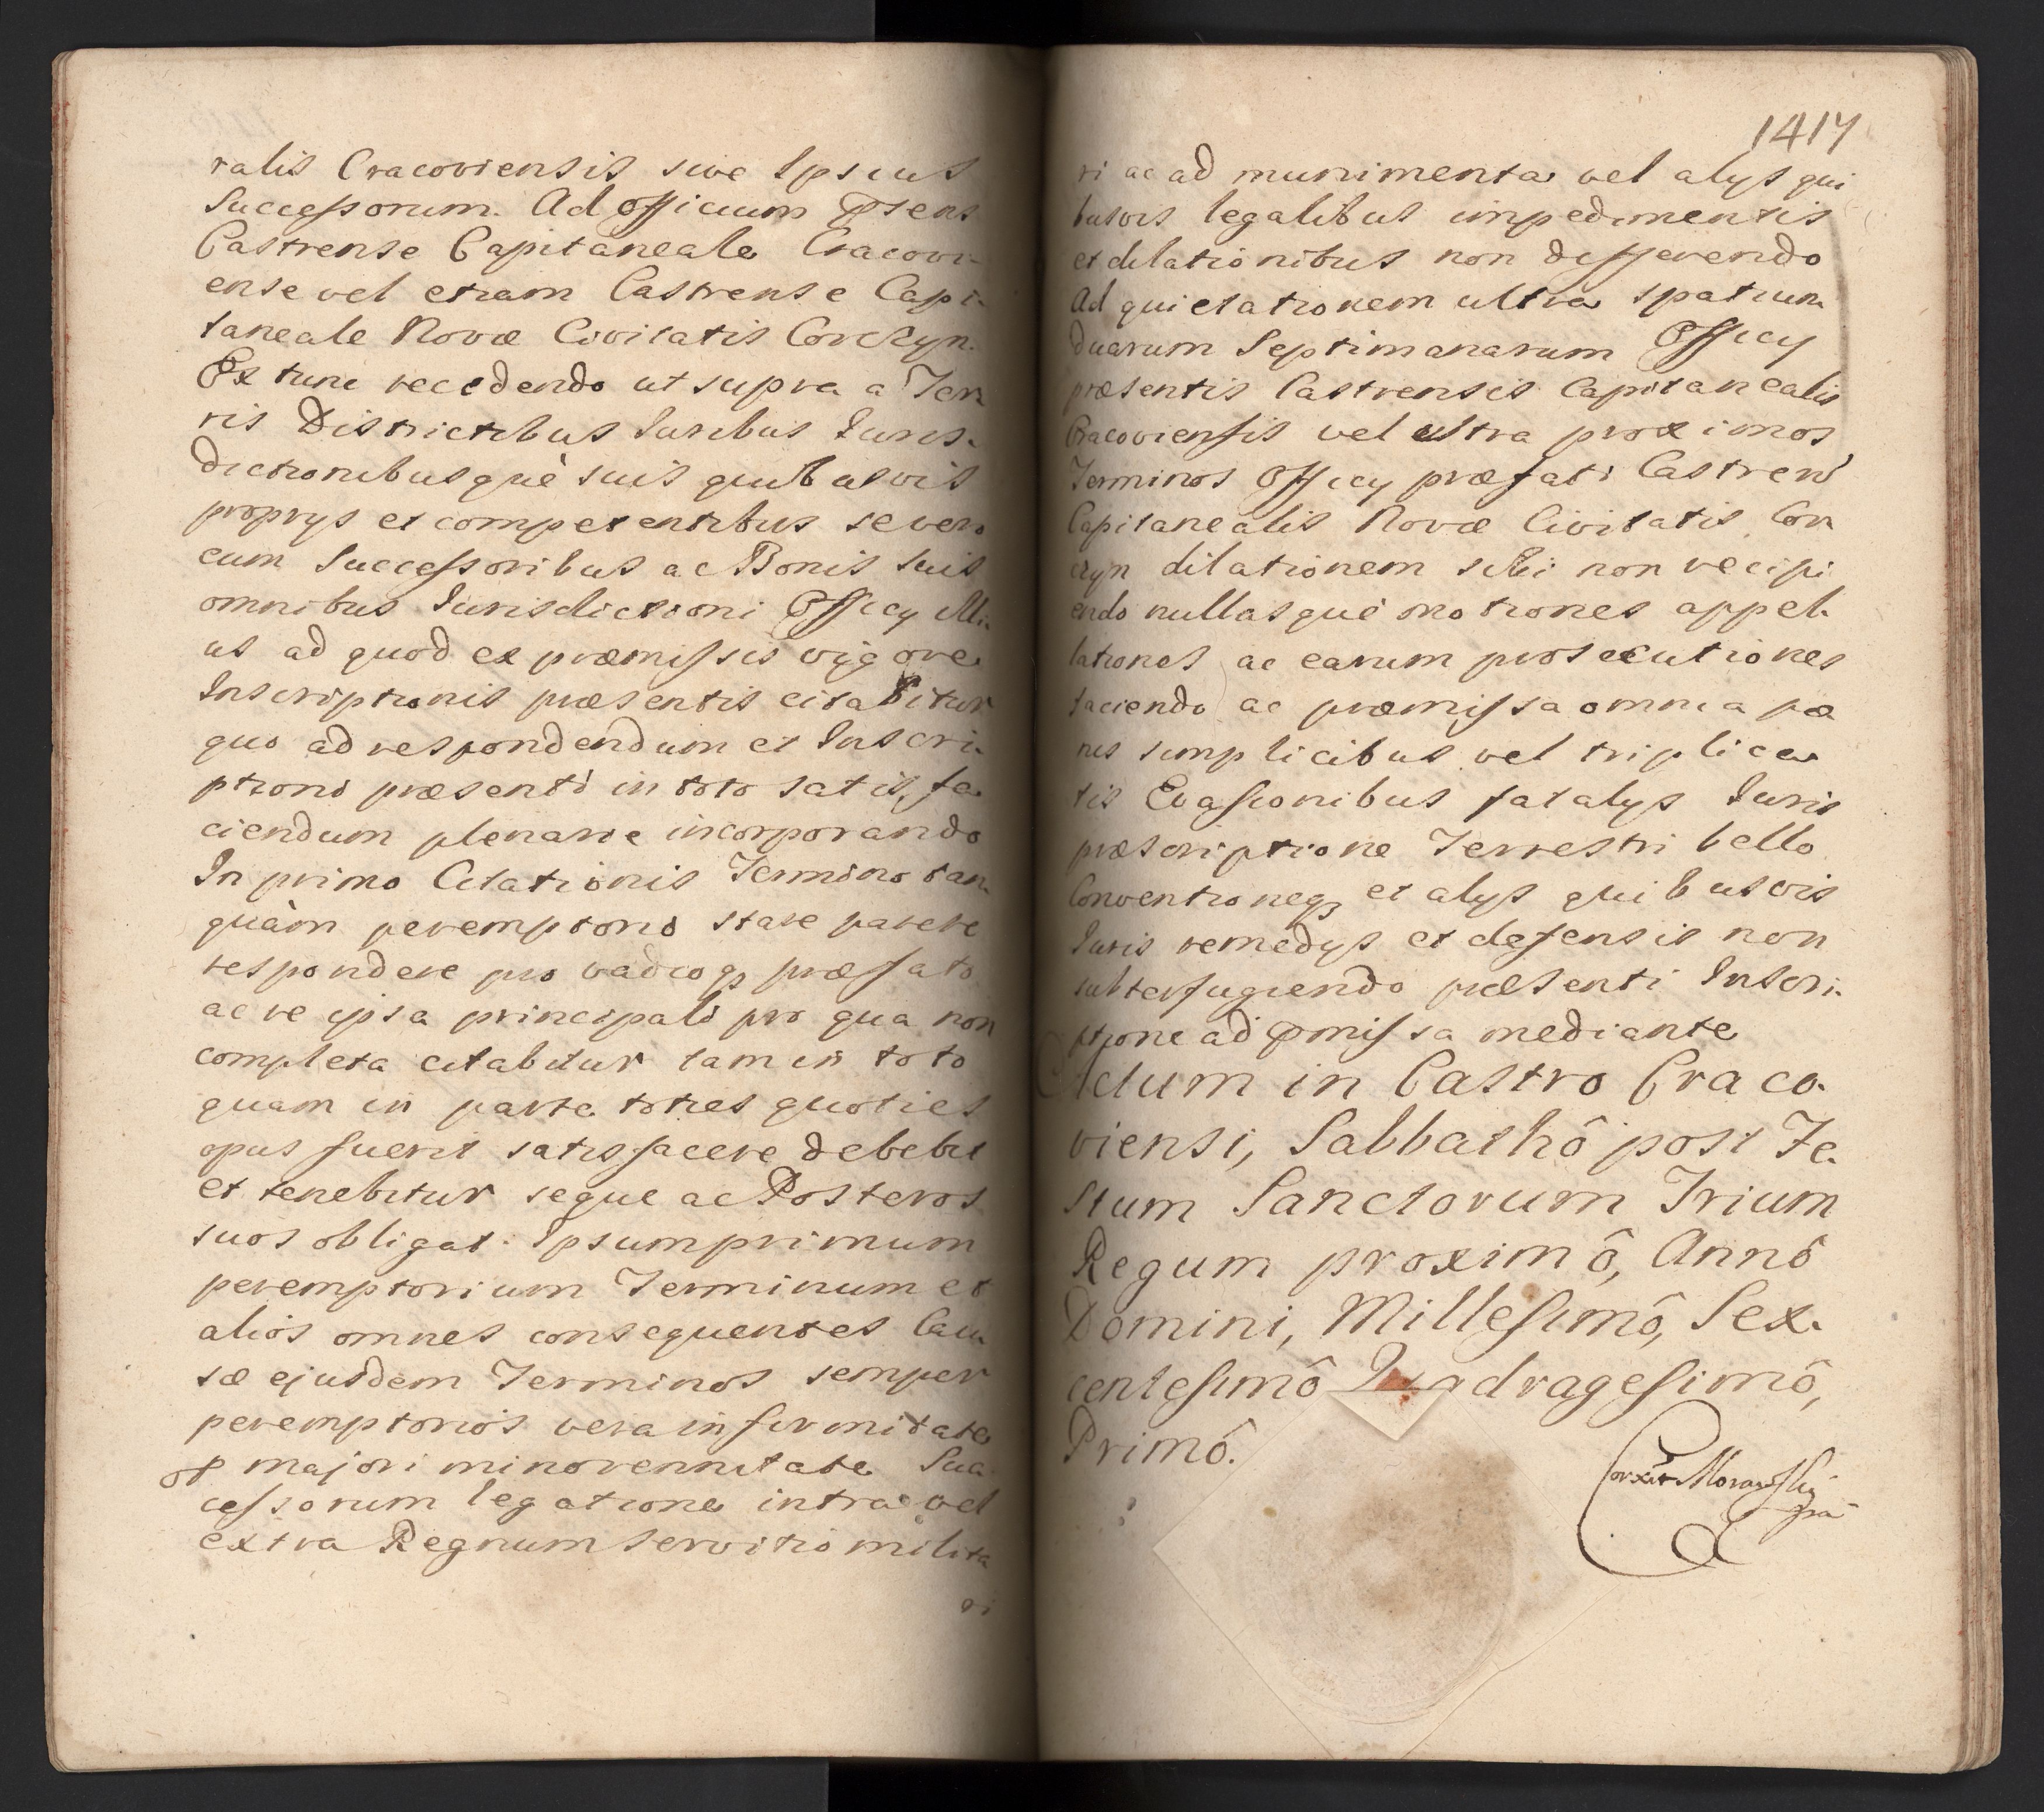 ralis Cracoviensis sive Ipsius
Successorum. Ad Officium Prsens
Castrense Capitaneale Cracovi-
ense vel etiam Castrense Capi-
taneale Novæ Civitatis Corczyn.
Ex tunc recedendo ut supra a Ter
ris Districtibus Iuribus Iuris-
dictionibusquè suis quibusvis
proprys et competentibus se vero
cum Successoribus ac Bonis suis
omnibus Iurisdictioni Officy illi-
us ad quod ex præmissis vigore
Inscriptionis præsentis citabitur
quo ad respondendum et Inscri-
ptioni præsenti in toto satis fa
ciendum plenarie incorporando
In primo Citationis Termino tan-
quàm peremptorio stare parere
respondere pro vadioq præfato
ac re ipsa principali pro qua non
completa citabitur tam in toto
quam in parte toties quoties
opus fuerit satisfacere debebit
et tenebitur seque ac Posteros
suos obligat. Ipsum primum
peremptorium Terminum et
alios omnes consequentes Cau-
sæ ejusdem Terminos semper
peremptorios vera infirmitate
majori minorennitate Suc
cessorum legatione intra vel
extra Regnum servitio milita
ri
1417
ri ac ad munimenta vel alys qui
busvis legalibus impedimentis
et dilationibus non differendo
Ad quietationem ultra spatium
duarum Septimanarum Officy
præsentis Castrensis Capitanealis
Cracoviensis vel ultra proximos
Terminos Officy præfati Castren
Capitanealis Novæ Civitatis Cor
czyn dilationem sibi non recipi
endo nullasquè motiones appel-
lationes ac earum prosecutiones
faciendo ac præmissa omnia pæ
nis simplicibus vel triplica
tis Evasionibus fatalys Iuris
præscriptione Terrestri bello
Conventioneq et alys quibusvis
Iuris remedys et defensis non
subterfugiendo præsenti Inscri-
ptione ad pmissa mediante
Actum in Castro Craco-
viensi, Sabbathô post Fe-
stum Sanctorum Trium
Regum proximô, Annô
Domini, Millesimô, Sex-
centesimô Quadragesimô,
Primô.
Corxit Morawski